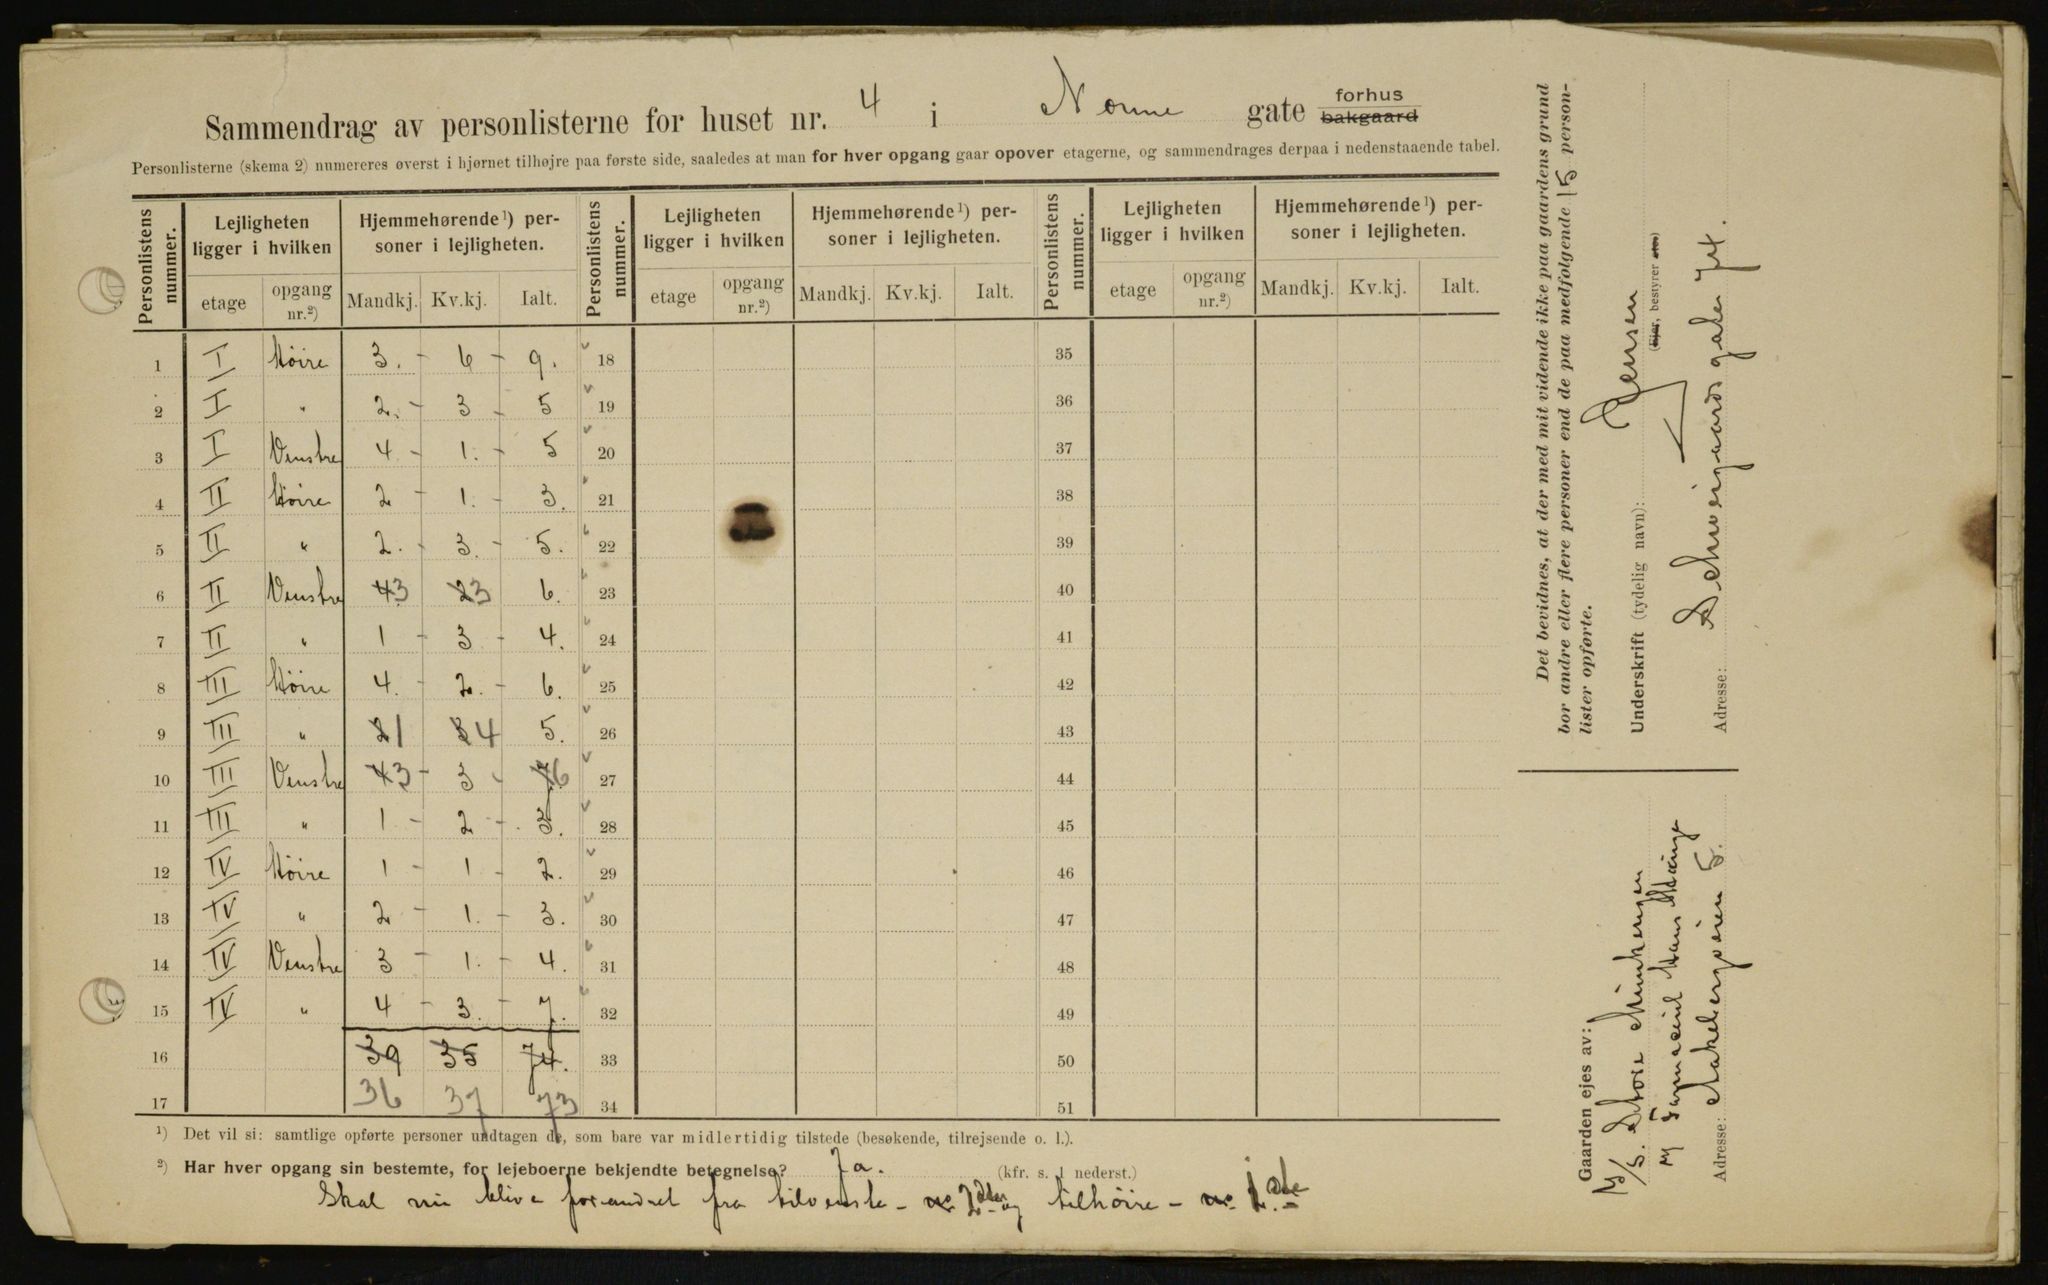 Sammendrag av personlisterne for huset nr. 4 i Norne gate forhus bakgaard
Personlisterne (skema 2) numereres øverst i hjørnet tilhøjre paa første side, saaledes at man for hver opgang gaar opover etagerne, og sammendrages derpaa i nedenstaaende tabel.
Personlistens nummer. Lejligheten ligger i hvilken Hjemmehørende¹) personer i lejligheten. Personlistens nummer. Lejligheten ligger i hvilken Hjemmehørende¹) personer i lejligheten. Personlistens nummer. Lejligheten ligger i hvilken Hjemmehørende¹) personer i lejligheten.
etage opgang nr.²) Mandkj. Kv.kj. Ialt. etage opgang nr.²) Mandkj. Kv.kj. Ialt. etage opgang nr.²) Mandkj. Kv.kj. Ialt.
1 I Höire 3. - 6 - 9. 18 35
2 I " 2. - 3 - 5 19 36
3 I Venstre 4 - 1. - 5 20 37
4 II Höire 2 - 1. - 3. 21 38
5 II " 2. - 3. - 5. 22 39
6 II Venstre 43 23 6. 23 40
7 II " 1 - 3 - 4. 24 41
8 III Höire 4. - 2. - 6. 25 42
9 III " 21 34 5. 26 43
10 III Venstre 43 - 3 - 76 27 44
11 III " 1 - 2 - 3. 28 45
12 IV Höire 1 - 1 - 2. 29 46
13 IV " 2 - 1. - 3. 30 47
14 IV Venstre 3 - 1. - 4. 31 48
15 IV " 4 - 3. - 7. 32 49
16 39 35 74. 33 50
17 36 37 73 34 51
¹) Det vil si: samtlige opførte personer undtagen de, som bare var midlertidig tilstede (besøkende, tilrejsende o. l.).
²) Har hver opgang sin bestemte, for lejeboerne bekjendte betegnelse? Ja. (kfr. s. 1 nederst.)
Skal nu blive forandret fra tilvenstre - no 2den og tilhöire - no. 1ste
Det bevidnes, at der med mit vidende ikke paa gaardens grund
bor andre eller flere personer end de paa medfølgende 15 person-
lister opførte.
Underskrift (tydelig navn): Jensen
(Ejer, bestyrer etc.)
Adresse: Schweigaards gate 74.
Gaarden ejes av:
Adresse: Akersveien 5.